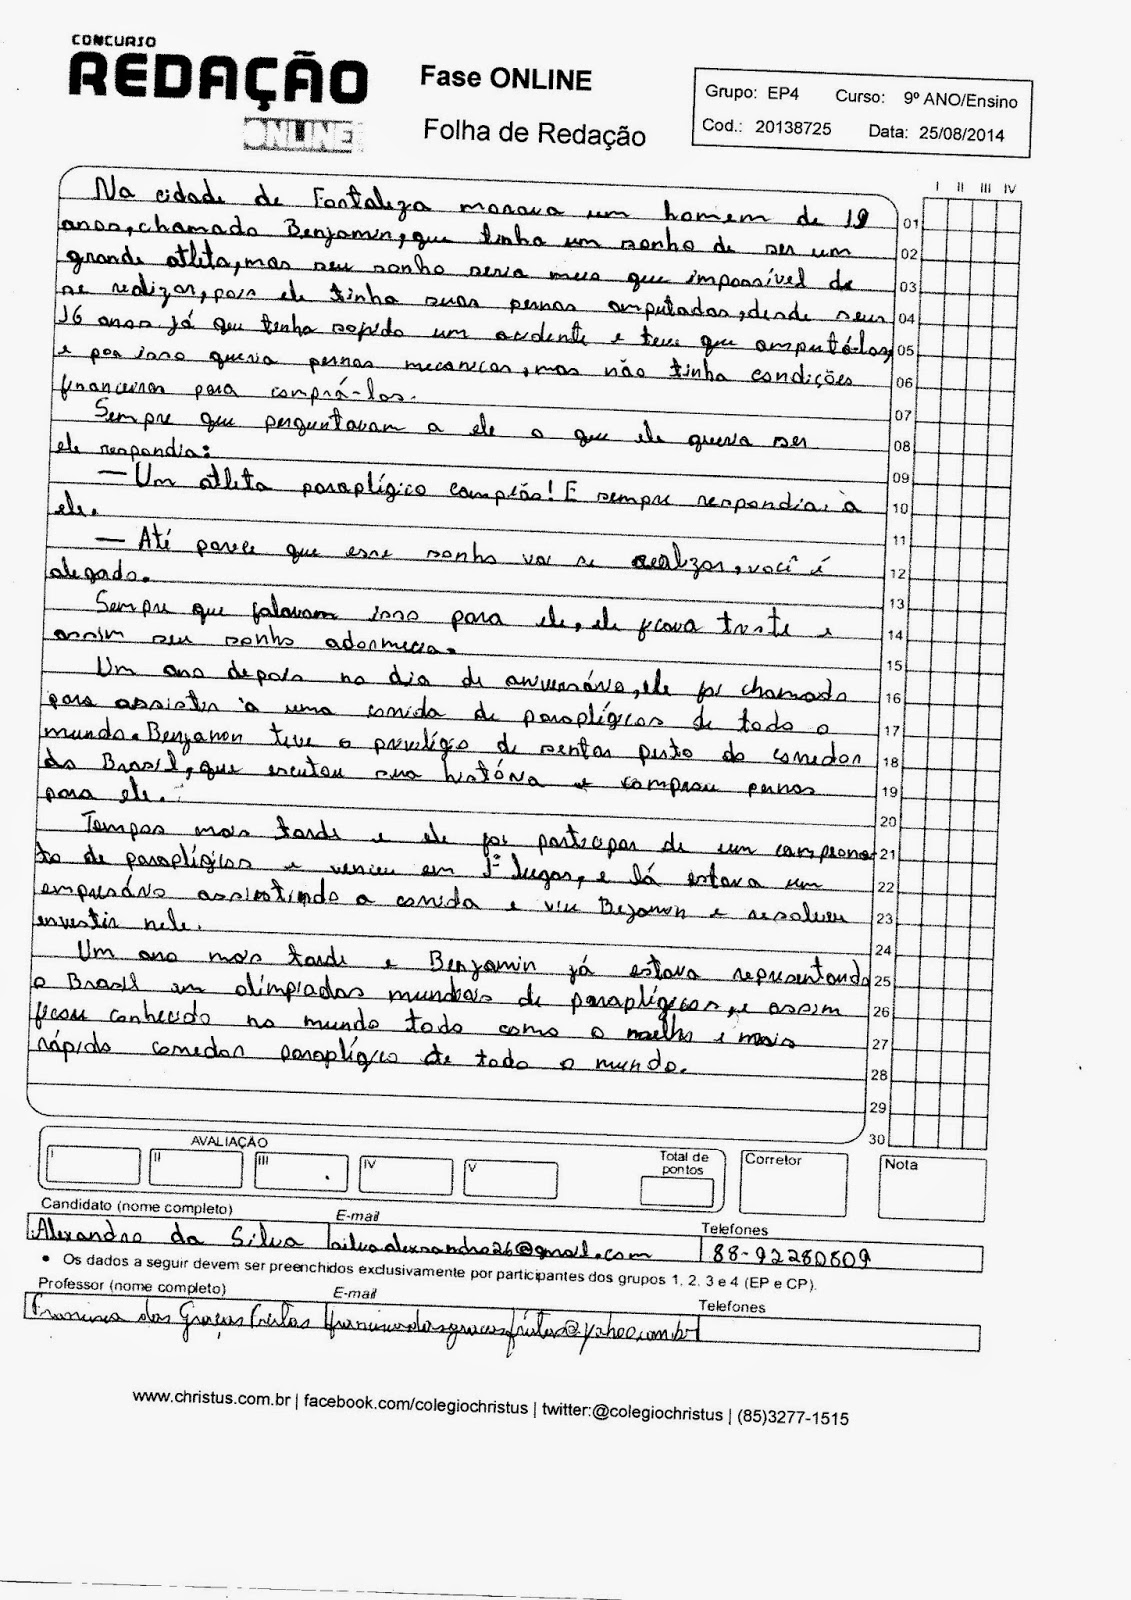 CONCURSO
REDAÇÃO
ONLINE
Fase ONLINE
Folha de Redação
Grupo: EP4 Curso: 9º ANO/Ensino
Cod.: 20138725 Data: 25/08/2014
I II III IV
Na cidade de Fortaleza morava um homem de 19 01
anos, chamado Benjamin, que tinha um sonho de ser um 02
grande atleta, mas seu sonho seria meio que impossível de 03
se realizar, pois ele tinha suas pernas amputadas, desde seus 04
16 anos já que tinha sofrido um acidente e teve que amputá-las, 05
e por isso queria pernas mecanicas, mas não tinha condições 06
financeiras para comprá-las. 07
Sempre que perguntavam a ele o que ele queria ser 08
ele respondia: 09
— Um atleta paraplégico campeão! E sempre respondia, à 10
ele. 11
— Até parece que esse sonho vai se realizar, você é 12
alejado. 13
Sempre que falavam isso para ele, ele ficava triste e 14
assim seu sonho adormecia. 15
Um ano depois no dia de aniversário, ele foi chamado 16
para assistir à uma corrida de paraplégicos de todo o 17
mundo. Benjamin teve o privilégio de sentar perto do corredor 18
do Brasil, que escutou sua história e comprou pernas 19
para ele. 20
Tempos mais tarde e ele foi participar de um campeona 21
to de paraplégicos e venceu em 1º lugar, e lá estava um 22
empresário assistindo a corrida e viu Bejamin e resolveu 23
investir nele. 24
Um ano mais tarde e Benjamin já estava representando 25
o Brasil em olimpiadas mundiais de paraplégicos, e assim 26
ficou conhecido no mundo todo como o melhor e mais 27
rápido corredor paraplégico de todo o mundo. 28
29
30
AVALIAÇÃO
I II III IV V
Total de pontos
Corretor
Nota
Candidato (nome completo) E-mail Telefones
Alexandro da Silva silvaalexsandro26@gmail.com 88-92280809
• Os dados a seguir devem ser preenchidos exclusivamente por participantes dos grupos 1, 2, 3 e 4 (EP e CP).
Professor (nome completo) E-mail Telefones
Francisca das Graças Freitas franciscadasgracasfreitas@yahoo.com.br
www.christus.com.br | facebook.com/colegiochristus | twitter:@colegiochristus | (85)3277-1515